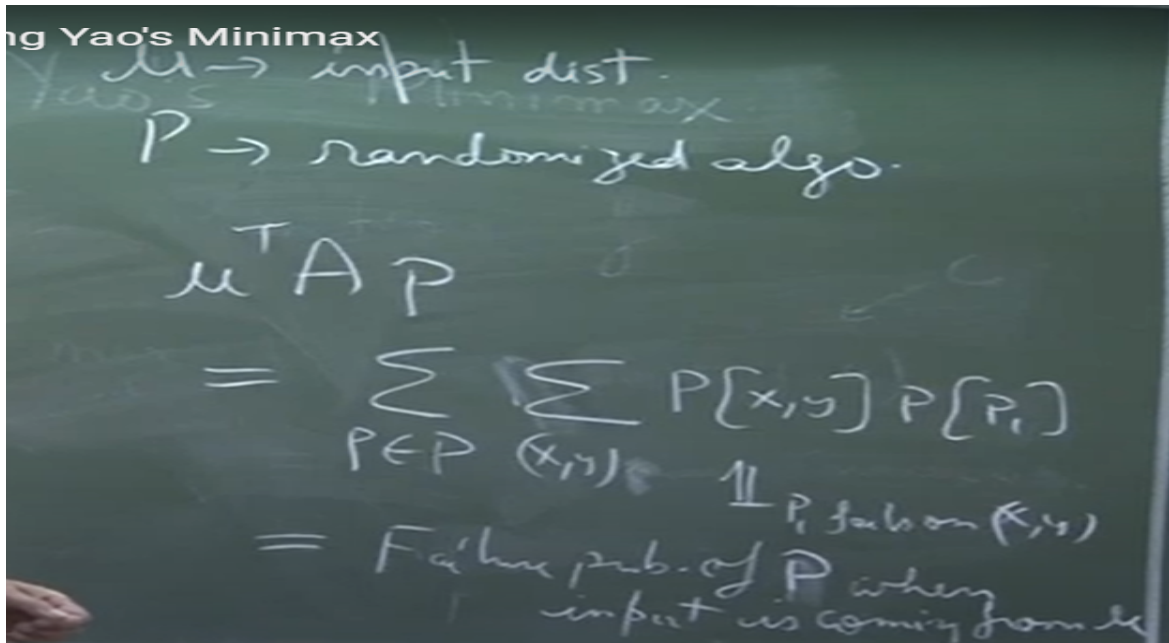 ng Yao's Minimax
μ → input dist.
Yao's Minimax
P → randomized algo.
μᵀ A P
= Σ Σ P[x,y] P[P₁]
P∈P (x,y)
𝟙 P₁ fails on (x,y)
= Failure prob. of P when
input is coming from μ